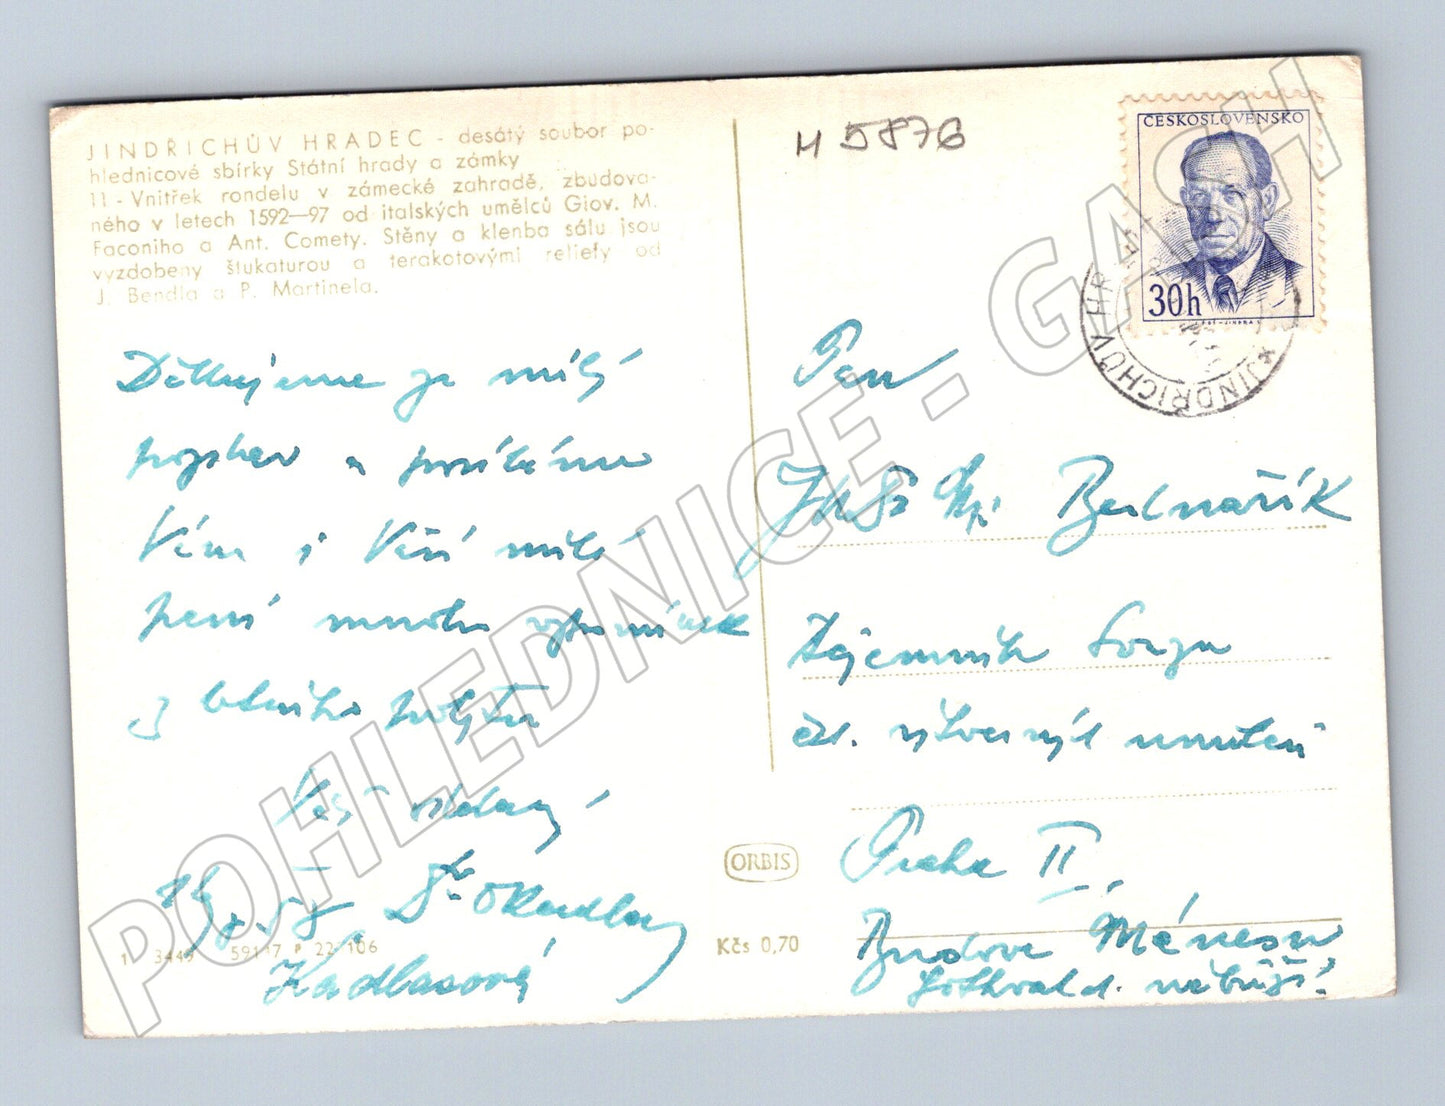 JINDŘICHŮV HRADEC - desátý soubor po-
hlednicové sbírky Státní hrady a zámky
11 - Vnitřek rondelu v zámecké zahradě, zbudova-
ného v letech 1592—97 od italských umělců Giov. M.
Faconiho a Ant. Comety. Stěny a klenba sálu jsou
vyzdobeny štukaturou a terakotovými reliefy od
J. Bendla a P. Martinela.
H 5876
ČESKOSLOVENSKO
30h
JINDŘICHŮV HR
Děkujeme za milý
pozdrav a posíláme
Vám i Vaší milé
paní mnoho vzpomínek
z letního pobytu
Váš oddaný
Dr
Kadlasová
Pan
Bednařík
tajemník Svazu
čsl. výtvarných umělců
Praha II,
Budova Mánesu
Gothvald. nábřeží
ORBIS
Kčs 0,70
59117 P 22 106
POHLEDNICE - GASH